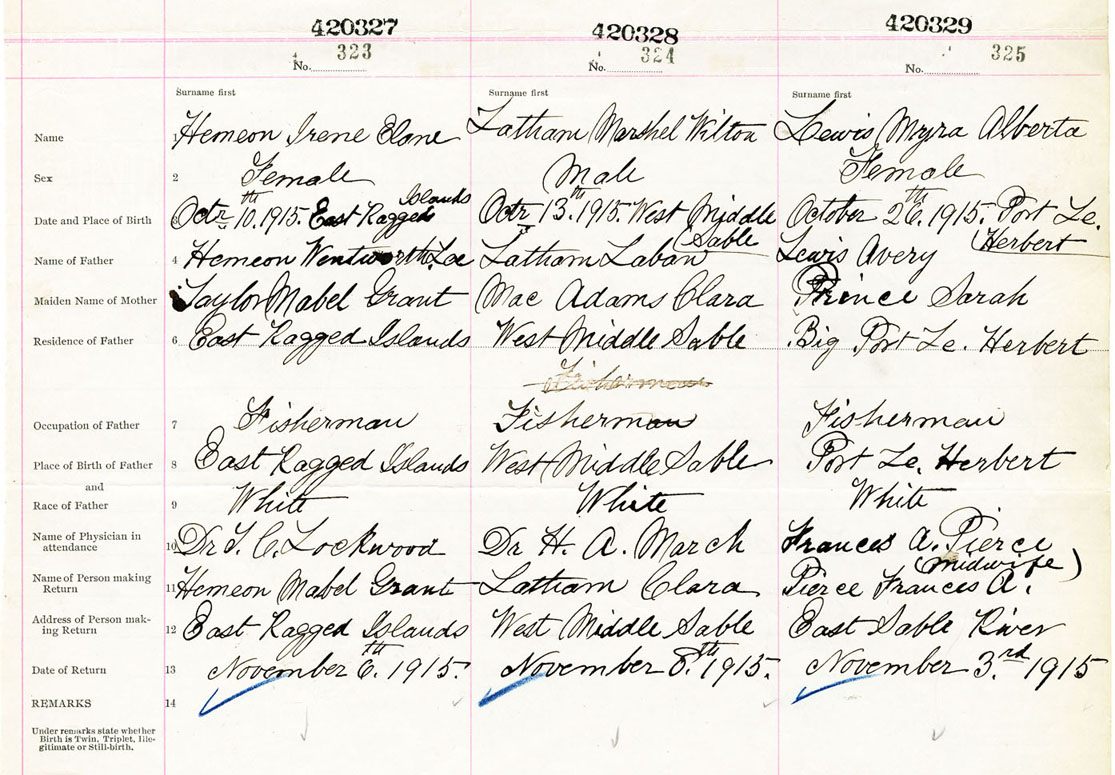 420327 420328 420329
No. 323 No. 324 No. 325
Surname first Surname first Surname first
Name 1 Hemeon Irene Elone Latham Marshel Wilton Lewis Myra Alberta
Sex 2 Female Male Female
Date and Place of Birth 3 Octr 10th. 1915. East Ragged Islands Octr 13th. 1915. West Middle Sable October 26th. 1915. Port Le. Herbert
Name of Father 4 Hemeon Wentworth Lee Latham Laban Lewis Avery
Maiden Name of Mother Taylor Mabel Grant Mac Adams Clara Prince Sarah
Residence of Father 6 East Ragged Islands West Middle Sable Big Port Le. Herbert
Fisherman
Occupation of Father 7 Fisherman Fisherman Fisherman
Place of Birth of Father 8 East Ragged Islands West Middle Sable Port Le. Herbert
and
Race of Father 9 White White White
Name of Physician in attendance 10 Dr C. Lockwood Dr H. A. March Frances A. Pierce (Midwife)
Name of Person making Return 11 Hemeon Mabel Grant Latham Clara Pierce Frances A.
Address of Person making Return 12 East Ragged Islands West Middle Sable East Sable River
Date of Return 13 November 6th. 1915. November 8th. 1915. November 3rd. 1915
REMARKS 14
Under remarks state whether
Birth is Twin, Triplet, Ille-
gitimate or Still-birth.